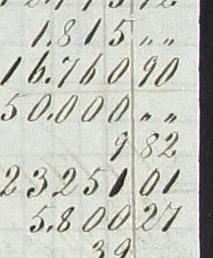 1.815 „ „
16.760 90
50.000 „ „
9 82
23251 01
5.800 27
39